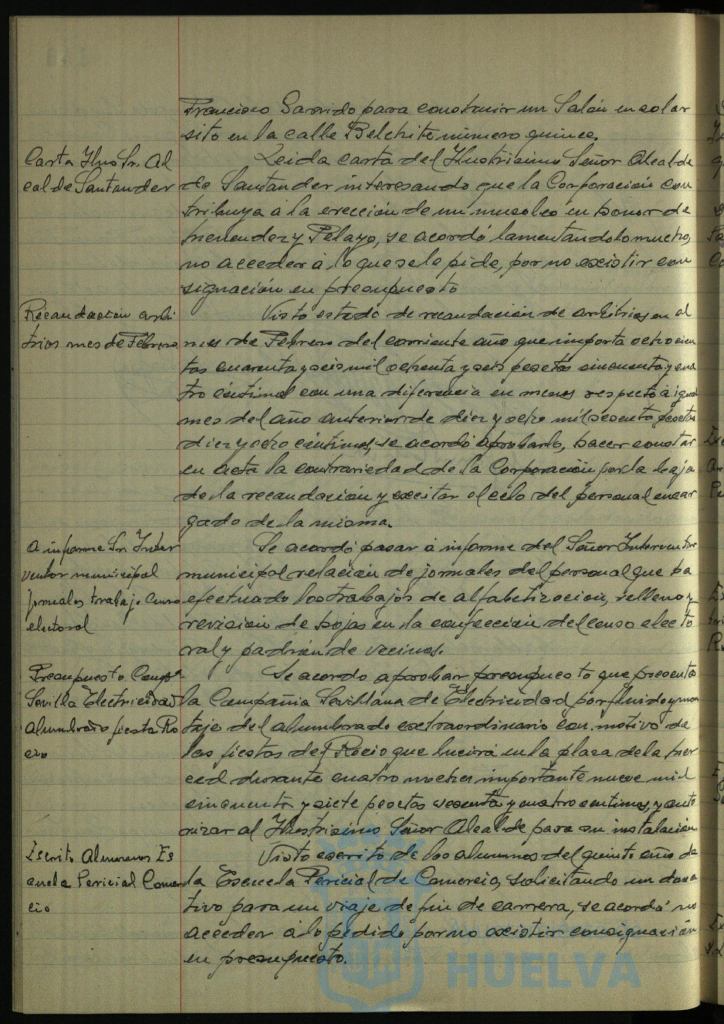 Francisco Garrido para construir un Salón en solar
sito en la calle Belchite número quince.
Carta Ilmo Sr. Al
calde Santander
Leida carta del Ilustrisimo Señor Alcalde
de Santander interesando que la Corporación con
tribuya á la erección de un museo en honor de
Menendez y Pelayo, se acordó lamentandolo mucho,
no acceder á lo que se le pide, por no existir con
signación en presupuesto
Recaudacion arbi
trios mes de Febrero
Visto estado de recaudación de arbitrios en el
mes de Febrero del corriente año que importa ochocien
tas cuarenta y seis mil ochenta y seis pesetas cincuenta y cua
tro céntimos con una diferencia en menos respecto á igual
mes del año anterior de diez y ocho mil pesetas
diez y ocho céntimos, se acordó aprobarlo, hacer constar
en acta la contrariedad de la Corporación por la baja
de la recaudación y excitar el celo del personal encar
gado de la misma.
A informe Sr. Inter
ventor municipal
jornales trabajo Censo
electoral
Se acordó pasar á informe del Señor Interventor
municipal relación de jornales del personal que ha
efectuado los trabajos de alfabetizacion, relleno y
revision de hojas en la confección del censo electo
ral y padrón de vecinos.
Presupuesto Compª
Sevilla Electricidad
Alumbrado fiesta Ro
cio
Se acordo aprobar presupuesto que presenta
la Compañia Sevillana de Electricidad por fluido y mon
taje del alumbrado extraordinario con motivo de
las fiestas del Rocio que lucirá en la plaza de la Mer
ced durante cuatro noches importante nueve mil
cincuenta y siete pesetas sesenta y cuatro centimos, y auto
rizar al Ilustrisimo Señor Alcalde para su instalación
Escrito Alumnos Es
cuela Pericial Comer
cio
Visto escrito de los alumnos del quinto año de
la Escuela Pericial de Comercio, solicitando un dona
tivo para un viaje de fin de carrera, se acordó no
acceder a lo pedido por no existir consignación
en presupuesto.
HUELVA